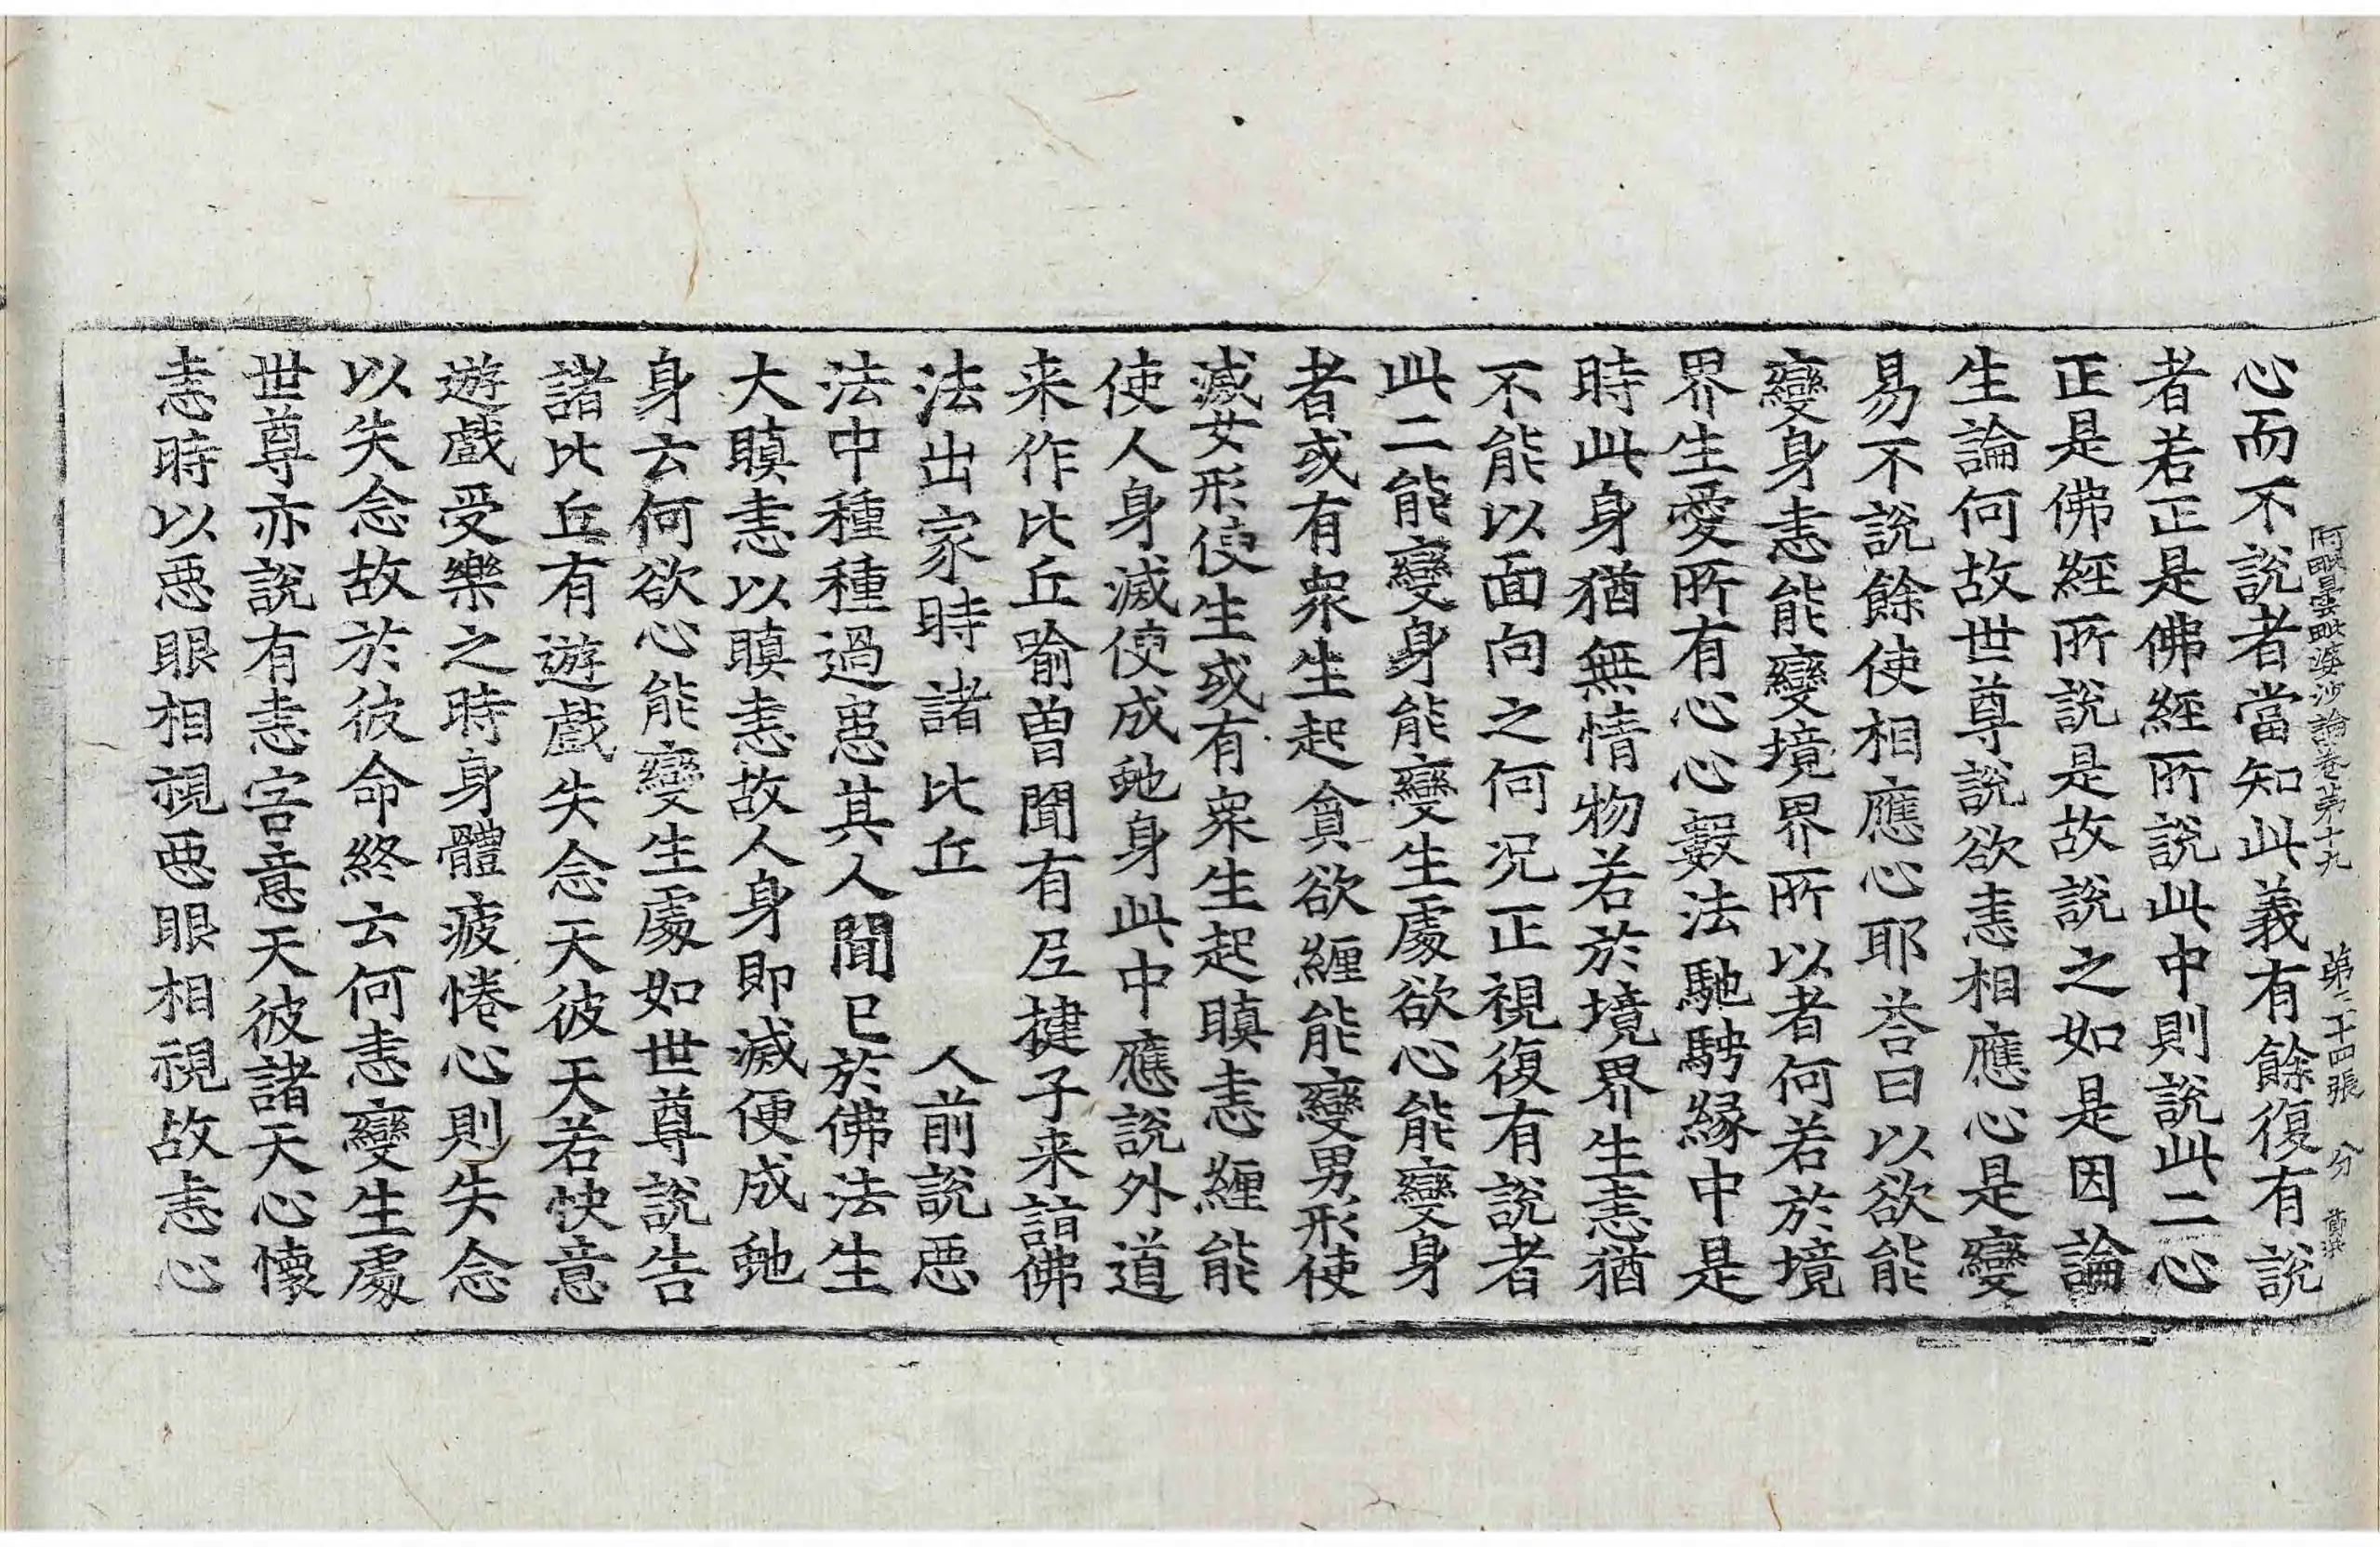 阿毗曇毗婆沙論卷第十九　第二十四張　分
心而不說者當知此義有餘復有說
者若正是佛經所說此中則說此二心
正是佛經所說是故說之如是因論
生論何故世尊說欲恚相應心是變
易不說餘使相應心耶荅曰以欲能
變身恚能變境界所以者何若於境
界生愛所有心心數法馳騁緣中是
時此身猶無情物若於境界生恚猶
不能以面向之何况正視復有說者
此二能變身能變生處欲心能變身
者或有衆生起貪欲纏能變男形使
滅女形使生或有衆生起瞋恚纏能
使人身滅使成虵身此中應說外道
来作比丘喻曾聞有尼揵子来詣佛
法出家時諸比丘　人前說惡
法中種種過患其人聞已於佛法生
大瞋恚以瞋恚故人身即滅便成虵
身云何欲心能變生處如世尊說告
諸比丘有遊戲失念天彼天若快意
遊戲受樂之時身體疲惓心則失念
以失念故於彼命終云何恚變生處
世尊亦說有恚害意天彼諸天心懷
恚時以惡眼相視惡眼相視故恚心